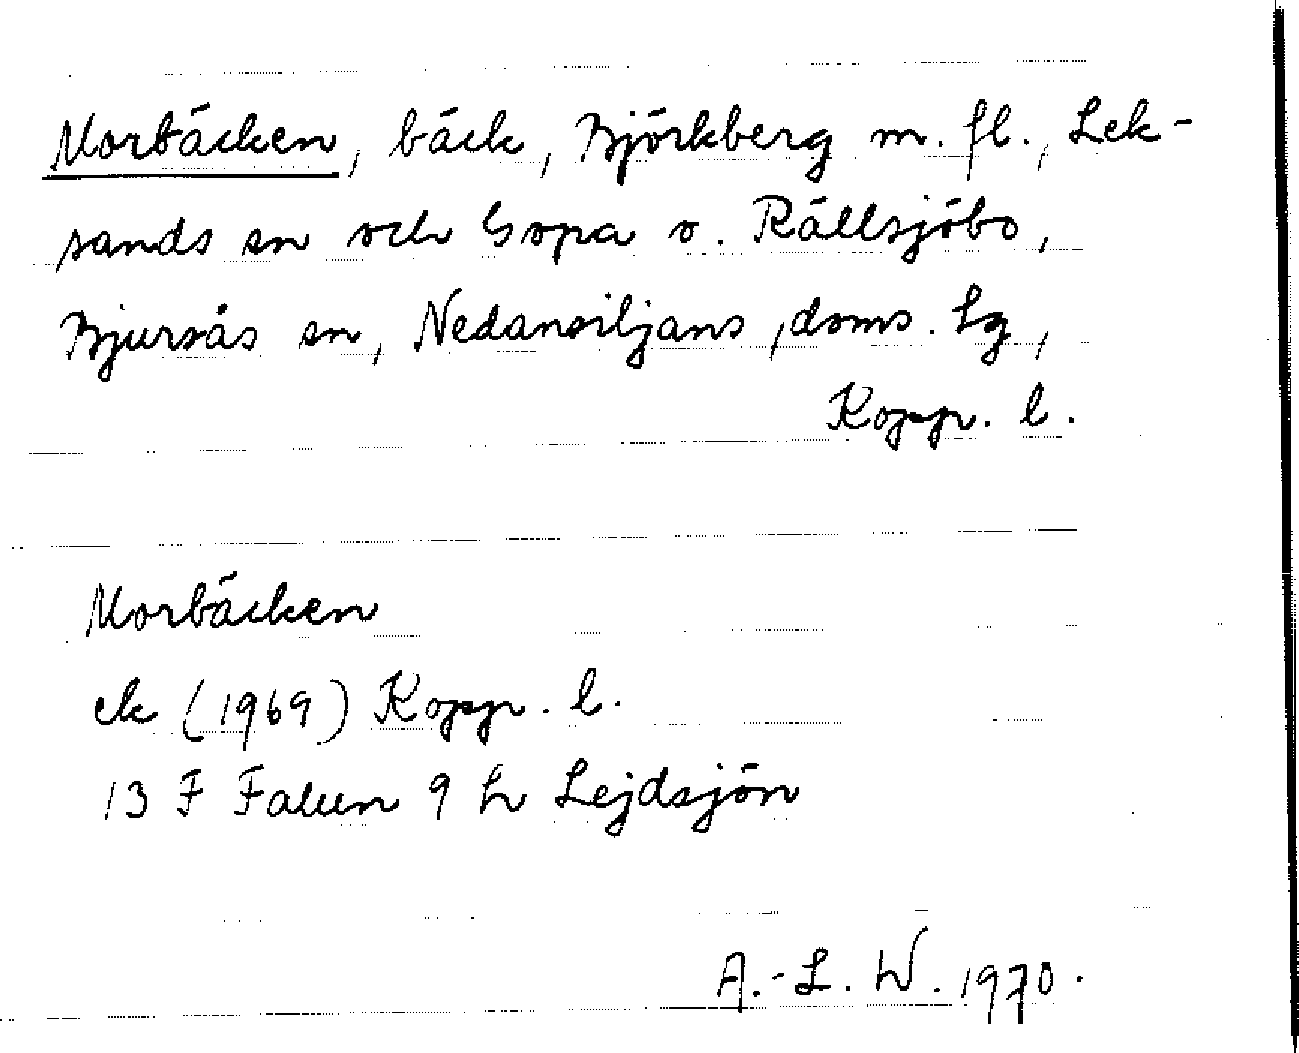 Morbäcken, bäck, Björkberg m. fl., Lek-
sands sn och Gopa o. Rällsjöbo,
Bjursås sn, Nedansiljans doms. lg,
Kopp. l.
Morbäcken
ek (1969) Kopp. l.
13 F Falun 9 h Lejdsjön
A.-L. W. 1970.